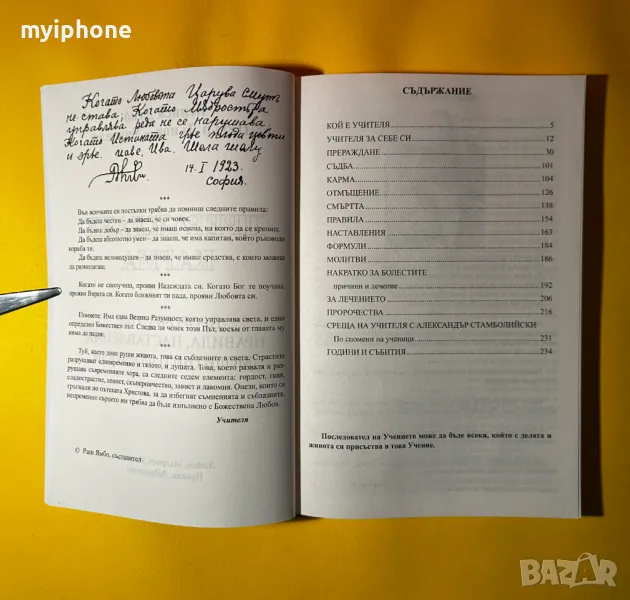 myiphone
Когато Любовта Царува Смут
не става, Когато Мъдростта
управлява реда не се нарушава
Когато Истината грѣе плода цъвти
и зрѣе.
14. I 1923.
София.
***
Във всичките си постъпки трябва да помниш следните правила:
Да бъдеш честен – да знаеш, че си човек.
Да бъдеш добър – да знаеш, че имаш основа, на която да се крепиш.
Да бъдеш абсолютно умен – да знаеш, че има капитан, който ръководи
кораба ти.
Да бъдеш великодушен – да знаеш, че имаш средства, с които можеш
да разполагаш.
***
Когато не сполучиш, прояви Надеждата си. Когато Бог те поучава,
прояви Вярата си. Когато ближният ти пада, прояви Любовта си.
***
Помнете: Има една Велика Разумност, която управлява света, и един
определен Божествен път. Следва ли човек този Път, косъм от главата му
няма да падне.
***
Туй, което днес руши живота, това са съблазните в света. Страстите
разрушават едновременно и тялото, и душата. Това, което разваля и раз-
рушава съвременните хора, са следните седем елемента: гордост, гняв,
сладострастие, леност, скъперничество, завист и лакомия. Онези, които са
тръгнали по пътеката Христова, за да избегнат съмненията и съблазните,
непременно сърцето им трябва да бъде изпълнено с Божествена Любов.
Учителя
© Раш Ямбо, съставител
СЪДЪРЖАНИЕ
КОЙ Е УЧИТЕЛЯ 5
УЧИТЕЛЯ ЗА СЕБЕ СИ 12
ПРЕРАЖДАНЕ 30
СЪДБА 101
КАРМА 104
ОТМЪЩЕНИЕ 126
СМЪРТТА 138
ПРАВИЛА 154
НАСТАВЛЕНИЯ 163
ФОРМУЛИ 184
МОЛИТВИ 186
НАКРАТКО ЗА БОЛЕСТИТЕ
причини и лечение 192
ЗА ЛЕЧЕНИЕТО 206
ПРОРОЧЕСТВА 216
СРЕЩА НА УЧИТЕЛЯ С АЛЕКСАНДЪР СТАМБОЛИЙСКИ
По спомени на ученици 231
ГОДИНИ И СЪБИТИЯ 234
Последовател на Учението може да бъде всеки, който с делата и
живота си присъства в това Учение.
BAZAR
bg